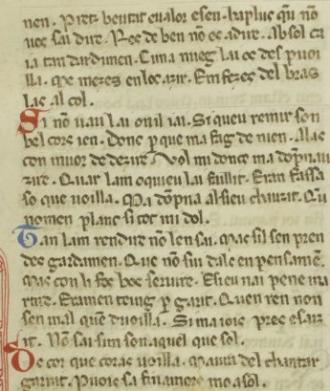 nen. Pretz beutat eualor esen. baplus qu nō
uos sai dire. Res de ben nō es adire. Ab sol ca
ia tan dardimen. Cuna nueg lai os des puoi
illa. Me mezes enloc aizir. Em fezes del bras
latz al col.
Si nō uau lai on il iai. Si queu remir son
bel cors ien. Donc per que ma fag de nien. Ailas
con muor de dezire. Vol mi donc ma dōpn au
zire. Quar lam oquieu lai faillit. Eran fassa
so que uoilla. Ma dōpna al sieu chauzit. Qu
nomen planc si tot mi dol.
Tan lam rendut nō len sai. Mas sil sen pren
des gardamen. Que nō sui dals en pensamē.
Mas con li fos bos seruire. Es ieu nai pene ma
rtire. Eramen teing per garit. Quen ren non
sen mal que duoilla. Si ma ioie prec esauz
it. Nō sai sim son aquel que sol.
De cor que cora uoilla. Maura del chantar
garnit. Puois sa finamors mo asol.